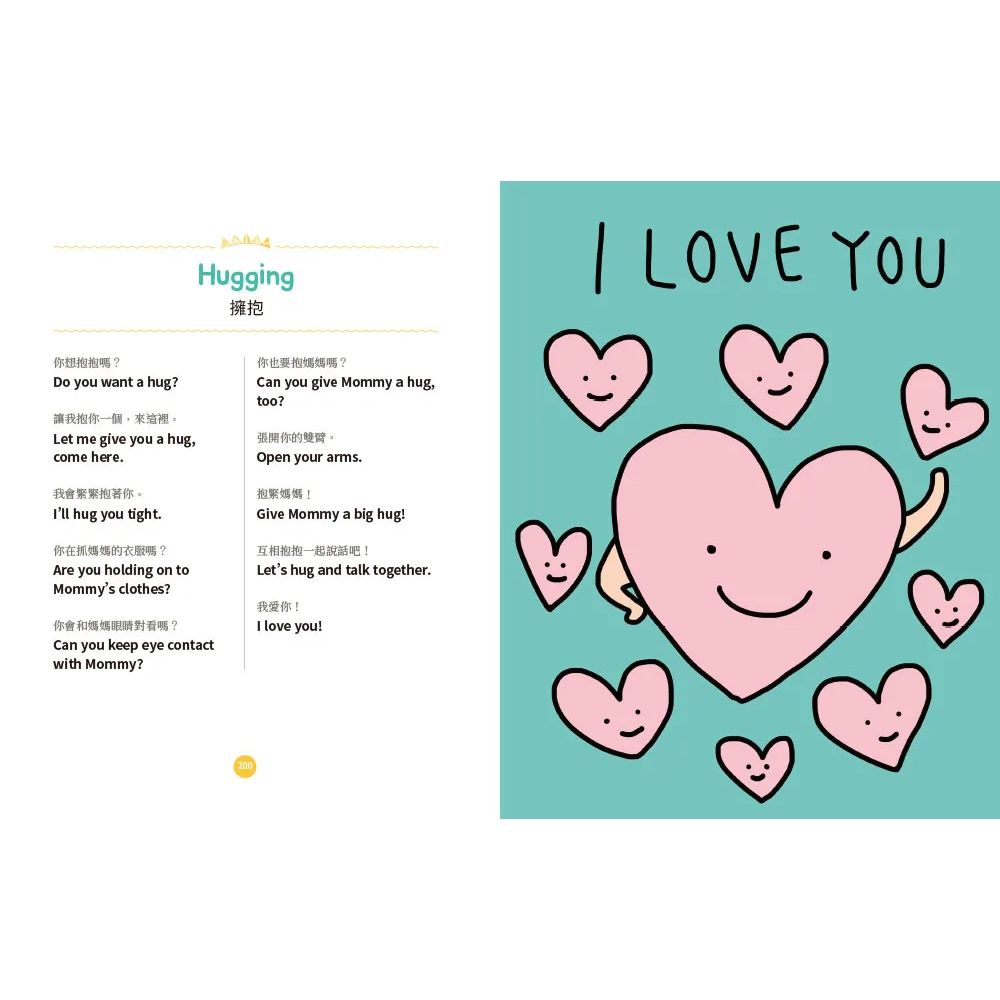 Hugging
擁抱
你想抱抱嗎？
Do you want a hug?
讓我抱你一個，來這裡。
Let me give you a hug,
come here.
我會緊緊抱著你。
I'll hug you tight.
你在抓媽媽的衣服嗎？
Are you holding on to
Mommy's clothes?
你會和媽媽眼睛對看嗎？
Can you keep eye contact
with Mommy?
你也要抱媽媽嗎？
Can you give Mommy a hug,
too?
張開你的雙臂。
Open your arms.
抱緊媽媽！
Give Mommy a big hug!
互相抱抱一起說話吧！
Let's hug and talk together.
我愛你！
I love you!
200
I LOVE YOU